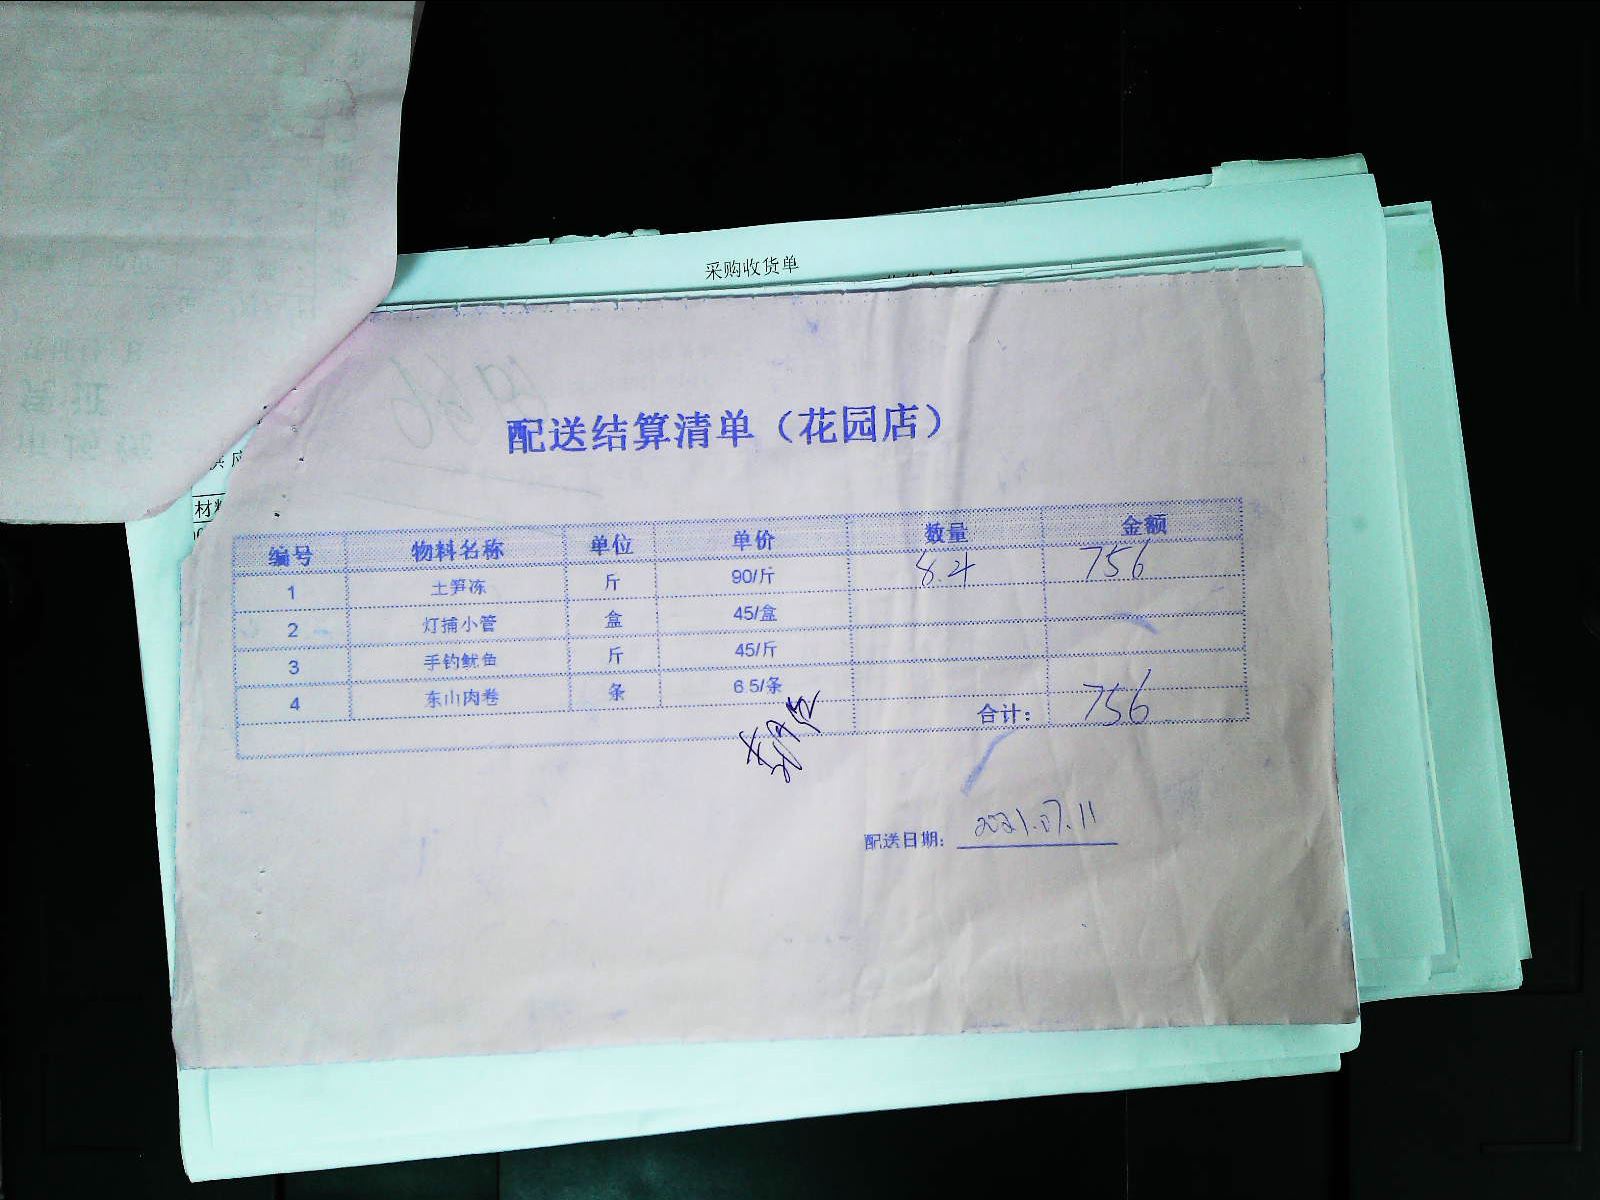 采购收货单
供应
材料
配送结算清单（花园店）
编号 物料名称 单位 单价 数量 金额
1 土笋冻 斤 90/斤 8.4 756
2 灯捕小管 盒 45/盒
3 手钓鱿鱼 斤 45/斤
4 东山肉卷 条 6.5/条
合计： 756
配送日期： 2021.07.11